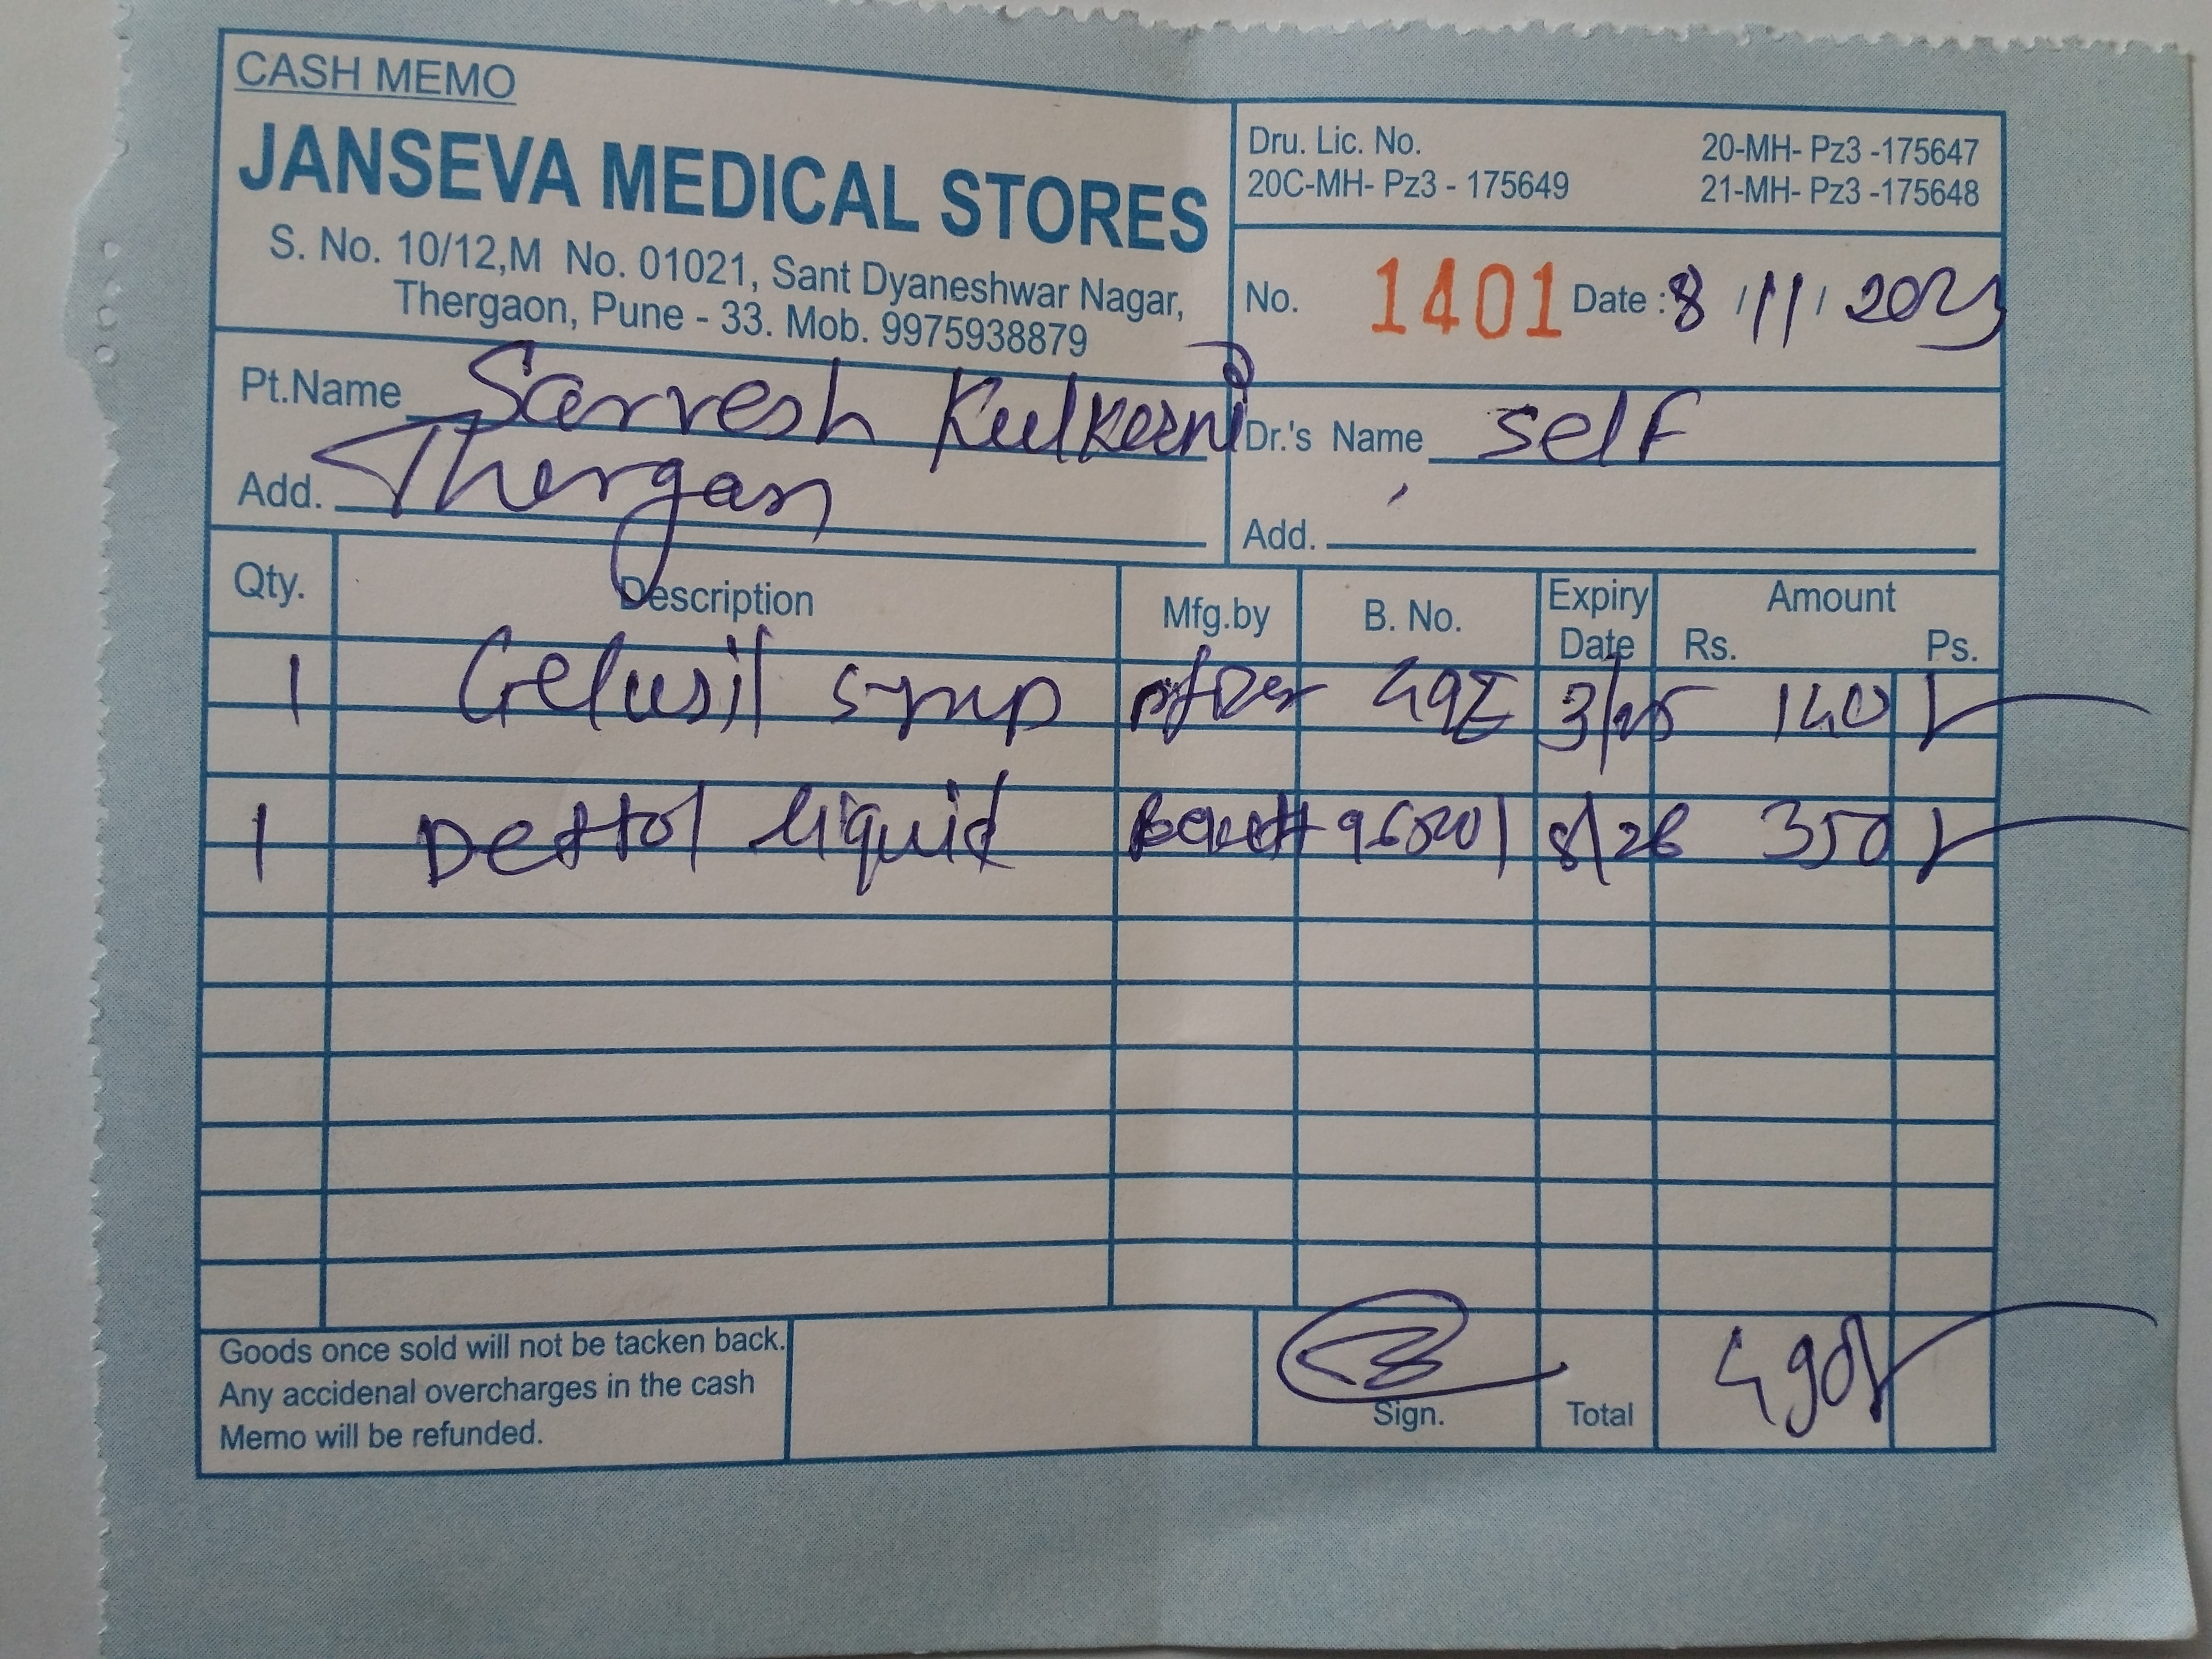 CASH MEMO
JANSEVA MEDICAL STORES
S. No. 10/12,M No. 01021, Sant Dyaneshwar Nagar,
Thergaon, Pune - 33. Mob. 9975938879
Dru. Lic. No. 20-MH- Pz3 -175647
20C-MH- Pz3 - 175649 21-MH- Pz3 -175648
No. 1401 Date : 8 / 11 / 2023
Pt.Name Sarvesh Kulkarni
Dr.'s Name self
Add. Thergaon
Add.
Qty. Description Mfg.by B. No. Expiry Date Amount Rs. Ps.
1 Gelusil syrup Pfizer 3/25 140
1 Dettol liquid 8/26 350
Goods once sold will not be tacken back.
Any accidenal overcharges in the cash
Memo will be refunded.
Sign. Total 490